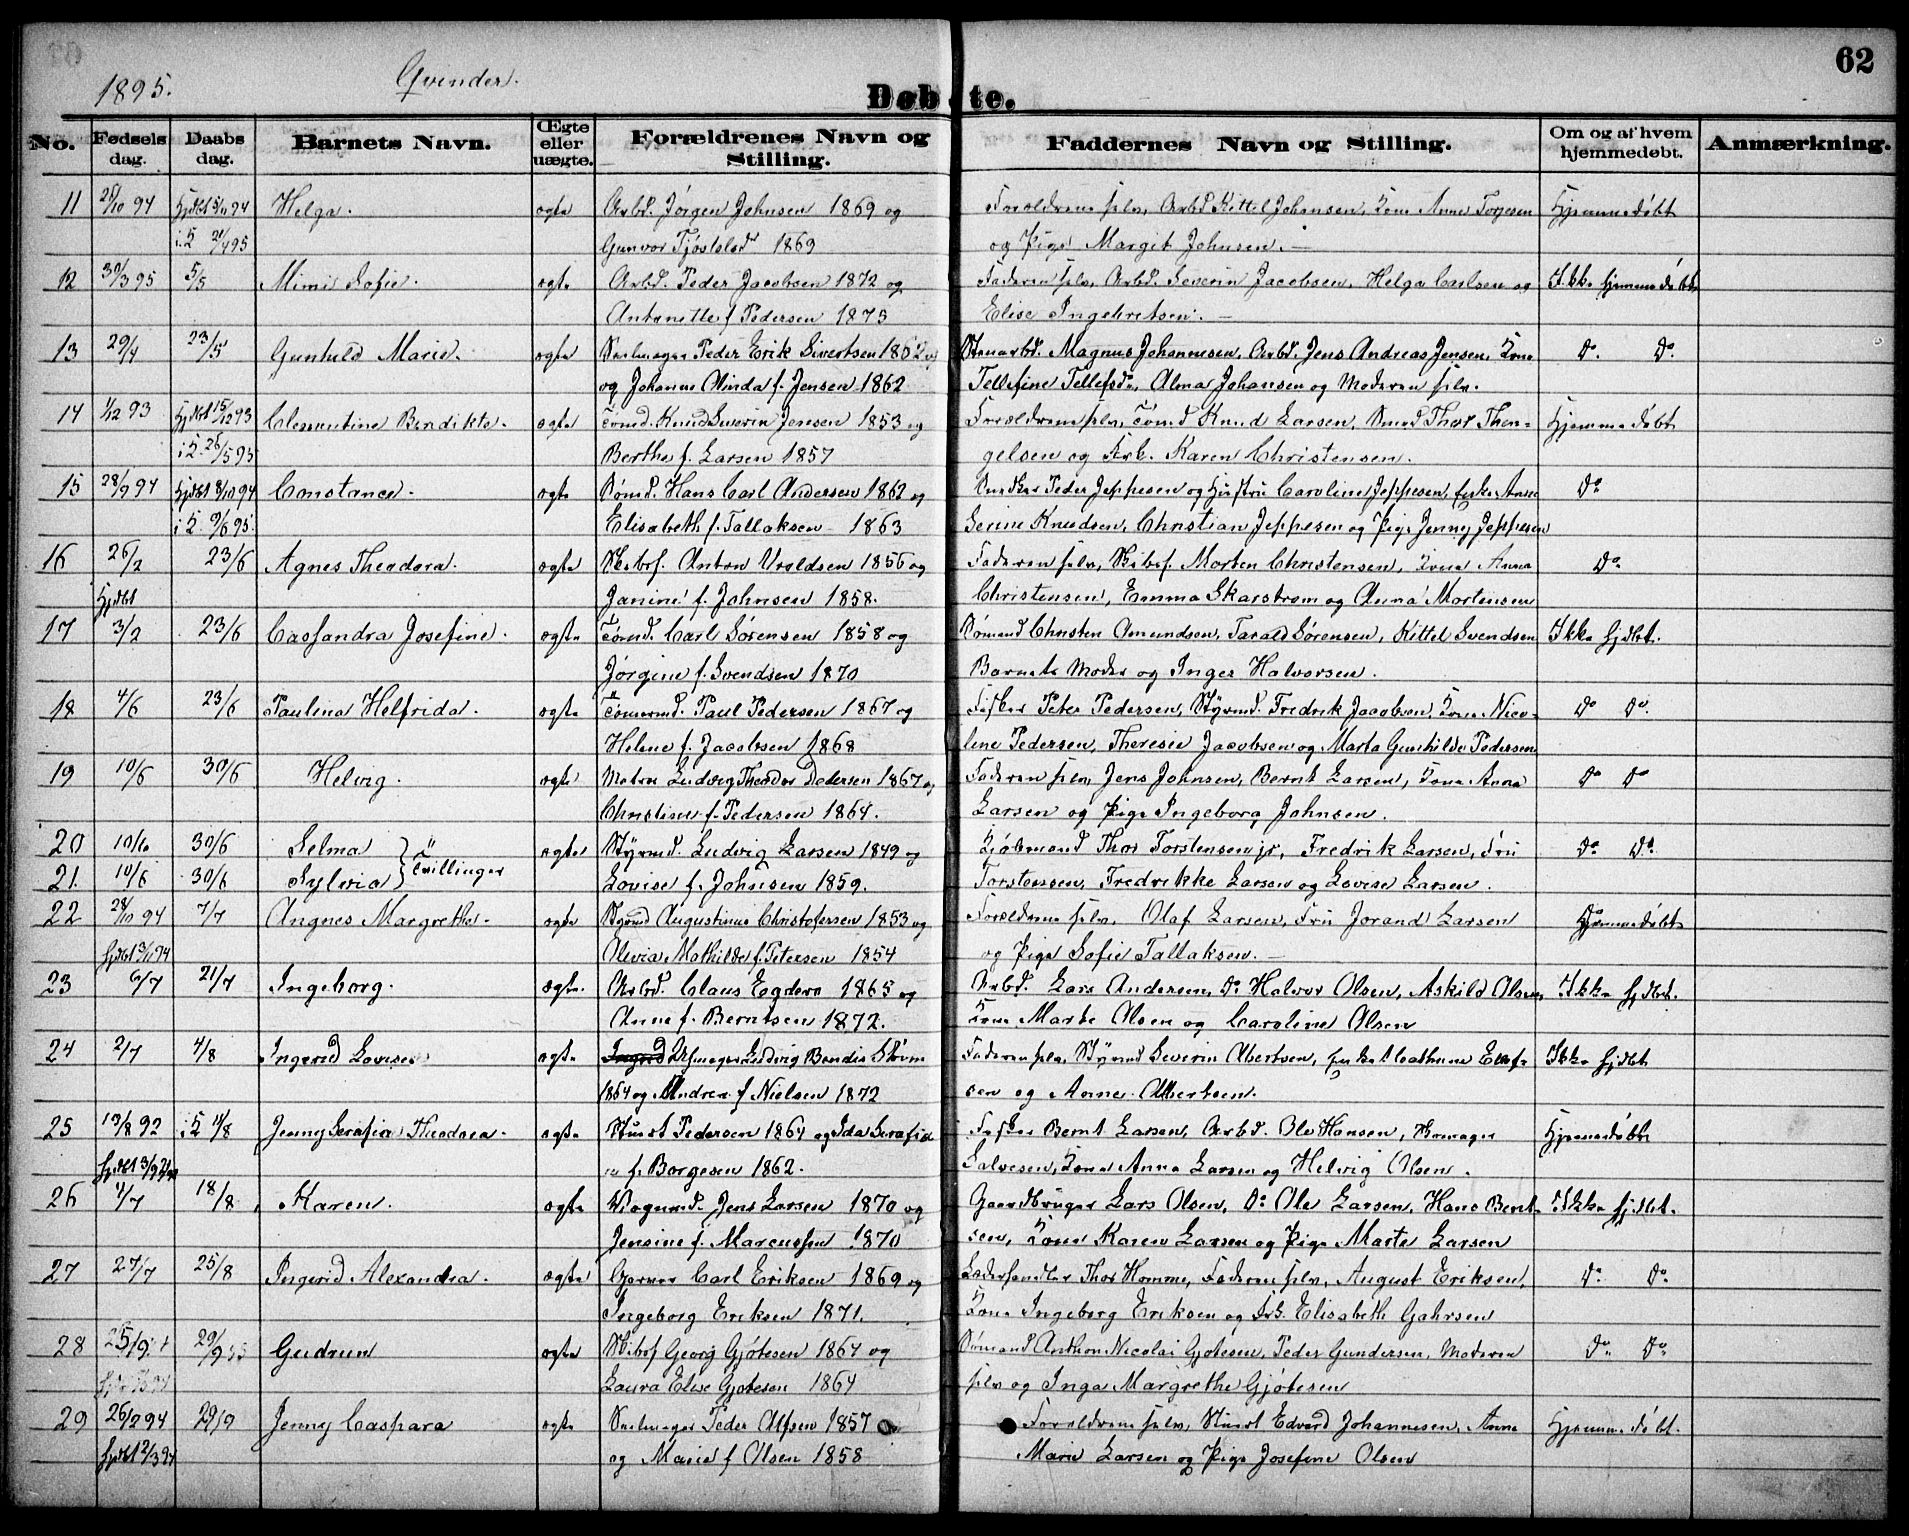 62
1895. Qvinder.
Døbte.
No. Fødsels dag. Daabs dag. Barnets Navn. Ægte eller uægte. Forældrenes Navn og Stilling. Faddernes Navn og Stilling. Om og af hvem hjemmedøbt. Anmærkning.
11 28/10 94 Hjdbt 5/11 94 Helga. ægte Arbd. Jörgen Johnsen 1869 og Forældrene selv, Arbd Kittel Johansen, Kone Anne Torjesen Hjemmedöbt
i K 21/4 95 Gunvor 1869 og Pige Margit Johnsen.
12 30/3 95 5/5 Mimi Sofie. ægte Arbd. Peder Jacobsen 1872 og Faderen selv, Arbd. Severin Jacobsen, Helga Carlsen og Ikke hjemmedöbt
Antonette f. Pedersen 1875 Elise Ingebretsen.
13 29/4 23/5 Gunhild Marie. ægte Seilmager Peder Erik Sivertsen og Stenarbd. Magnus Johannesen, Arbd. Jens Andreas Jensen, Kone Do. Do.
og Johanne Alinda f. Jensen 1862 Tellefine Tellefsdr, Alma Johansen og Moderen selv.
14 1/12 93 Hjdbt 15/12 93 Clementine Bendikte. ægte Tömd. Knud Severin Jensen 1853 og Forældrene selv, Tömd Knud Larsen, Smed Thor Then-
i K. 26/5 95 Berthe f. Larsen 1857 gelsen og Frk. Karen Christensen. Hjemmedöbt
15 28/9 94 Hjdbt 8/10 94 Constance. ægte Sömd. Hans Carl Andersen 1862 og Snedker Peder Jeppesen og Hustru Caroline Jeppesen, Enke Anne Do
i K. 9/6 95. Elisabeth f. Tallaksen 1863 Serine Knudsen, Christian Jeppesen og Pige Jenny Jeppesen
16 26/2 23/6 Agnes Theodora. ægte Skibsf. Anton Uvaldsen 1856 og Faderen selv, Skibsf. Morten Christensen, Kone Anna Do
Hjdbt Janine f. Johnsen 1858. Christensen, Emma Skarstrøm og Anna Mortensen
17 3/2 23/6 Cassandra Josefine. ægte Tömd. Carl Sörensen 1858 og Sömand Christen Amundsen, Tarald Sörensen, Kittel Svendsen Ikke hjdbt.
Jörgine f. Svendsen 1870 Barnets Moder og Inger Halvorsen.
18 4/6 23/6 Paulina Helfrida. ægte Tömmd. Paul Pedersen 1867 og Fisker Peter Pedersen, Styrmd. Fredrik Jacobsen, Kone Nico- Do Do.
Helene f. Jacobsen 1868 line Pedersen, Theresie Jacobsen og Marta Gunhilde Pedersen
19 10/6 30/6 Helvig. ægte Matros Ludvig Theodor Pedersen 1867 og Faderen selv, Jens Johnsen, Bernt Larsen, Kone Anna Do Do
Christine f. Pedersen 1864. Larsen og Pige Ingeborg Johnsen.
20 10/6 30/6 Selma ægte Styrmd. Ludvig Larsen 1849 og Kjöbmand Thor Torstensen jr, Fredrik Larsen, Fru Do. Do.
21. 10/6 30/6 Sylvia Tvillinger Lovise f. Johnsen 1859. Torstensen, Fredrikke Larsen og Lovise Larsen.
22 28/10 94 7/7 Angnes Margrethe. ægte Styrmd Augustinus Christofersen 1853 og Forældrene selv, Olaf Larsen, Fru Jorand Larsen Do Hjemmedöbt
hjdbt 3/11 94 Olivia Mathilde f. Petersen 1854 og Pige Sofie Tallaksen.
23 6/7 21/7 Ingeborg. ægte. Arbd. Claus Egdero 1865 og Arbd. Lars Andersen, Do Halvor Olsen, Askild Olsen, Ikke hjdbt.
Anne f. Berntsen 1872. Kone Marte Olsen og Caroline Olsen
24 2/7 4/8 Ingerid Lovise ægte Ludvig Bendix Ström Faderen selv, Styrmd Severin Albertsen, Enke Cathrine Ellef- Ikke hjdbt
1864 og Andrea f Nielsen 1872 sen og Anne Albertsen.
25 13/8 92 i K 11/8 Jenny Serafia Theodora. ægte Stuert Pedersen 1864 og Ida Serafia Fisker Bernt Larsen, Arbd. Ole Hansen, Salvesen, Kone Anna Larsen og Helvig Olsen. Hjemmedöbt
f. Borgesen 1862.
26 4/7 18/8 Karen. ægte Jens Larsen 1870 og Gaardbruger Lars Olsen, Do Ole Larsen, Hans Bernt- Ikke hjdbt.
Jensine f. Marcussen 1870 sen, Kone Karen Larsen og Pige Marte Larsen
27 27/7 25/8 Ingerid Alexandra. ægte Garver Carl Eriksen 1869 og Læderhandler Thor Homme, Faderen selv, August Eriksen, Do. Do.
Ingeborg Eriksen 1871. Kone Ingeborg Eriksen og Frk. Elisabeth Gahrsen
28 29/9 Gudrun ægte Skibsf Georg Gjötesen 1864 og Sömand Anthon Nicolai Gjötesen, Peder Gundersen, Moderen Do. Do.
Laura Elise Gjötesen 1864 selv og Inga Margrethe Gjötesen
29 26/2 94 29/9 Jenny Caspara ægte Seilmager Peder Alfsen 1857 Forældrene selv, Stuert Edvard Johannesen, Anne Hjemmedöbt.
hjdbt 2/3 94 og Marie f Olsen 1858 Marie Larsen og Pige Josefine Olsen